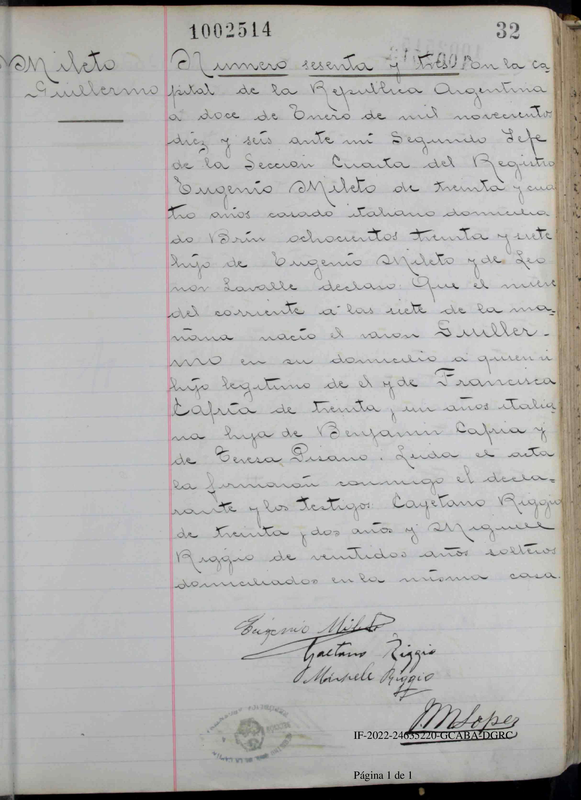 1002514
32
Mileto
Guillermo
Numero sesenta y tres En la ca-
pital de la Republica Argentina
a doce de Enero de mil novecientos
diez y seis ante mi Segundo Jefe
de la Seccion Cuarta del Registro
Eugenio Mileto de treinta y cua
tro años casado italiano domicilia
do Brin ochocientos treinta y siete
hijo de Eugenio Mileto y de Leo
nor Lavalle declaro Que el nueve
del corriente á las siete de la ma-
ñana nacio el varon Guiller-
mo en su domicilio a quien vi
hijo legitimo de el y de Francisca
Capria de treinta y un años italia
na hija de Benjamin Capria y
de Teresa Pisano. Leida el acta
la firmaron conmigo el decla-
rante y los testigos Cayetano Riggio
de treinta y dos años y Miguel
Riggio de veintidos años solteros
domiciliados en la misma casa.
Eugenio Mileto
Gaetano Riggio
Michele Riggio
J.M. Lopez
IF-2022-24655220-GCABA-DGRC
Página 1 de 1